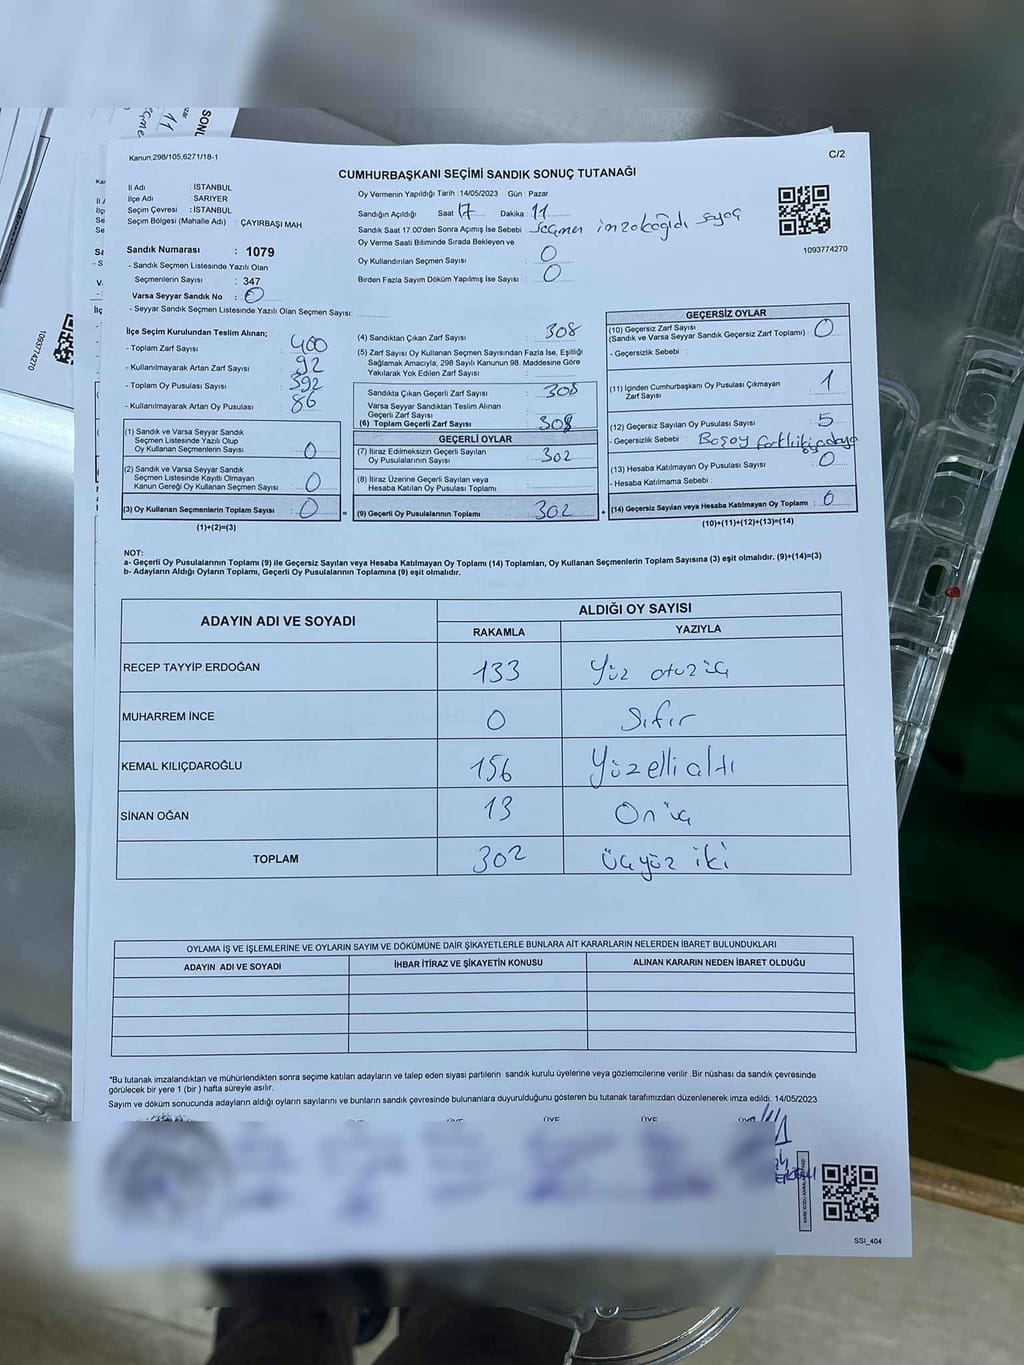 Kanun:298/105,6271/18-1
C/2
CUMHURBAŞKANI SEÇİMİ SANDIK SONUÇ TUTANAĞI
İl Adı : İSTANBUL
İlçe Adı : SARIYER
Seçim Çevresi : İSTANBUL
Seçim Bölgesi (Mahalle Adı) : ÇAYIRBAŞI MAH.
Sandık Numarası : 1079
- Sandık Seçmen Listesinde Yazılı Olan
Seçmenlerin Sayısı : 347
Varsa Seyyar Sandık No : 0
- Seyyar Sandık Seçmen Listesinde Yazılı Olan Seçmen Sayısı:
Oy Vermenin Yapıldığı Tarih :14/05/2023 Gün : Pazar
Sandığın Açıldığı Saat 17 Dakika : 11
Sandık Saat 17.00'den Sonra Açımış İse Sebebi : Seçmen
Oy Verme Saati Bitiminde Sırada Bekleyen ve
Oy Kullandırılan Seçmen Sayısı : 0
Birden Fazla Sayım Döküm Yapılmış İse Sayısı : 0
1093774270
İlçe Seçim Kurulundan Teslim Alınan;
- Toplam Zarf Sayısı : 400
- Kullanılmayarak Artan Zarf Sayısı : 92
- Toplam Oy Pusulası Sayısı : 392
- Kullanılmayarak Artan Oy Pusulası : 86
(1) Sandık ve Varsa Seyyar Sandık
Seçmen Listesinde Yazılı Olup
Oy Kullanan Seçmenlerin Sayısı : 0
(2) Sandık ve Varsa Seyyar Sandık
Seçmen Listesinde Kayıtlı Olmayan
Kanun Gereği Oy Kullanan Seçmen Sayısı : 0
(3) Oy Kullanan Seçmenlerin Toplam Sayısı : 0
(1)+(2)=(3)
=
(4) Sandıktan Çıkan Zarf Sayısı : 308
(5) Zarf Sayısı Oy Kullanan Seçmen Sayısından Fazla İse, Eşitliği
Sağlamak Amacıyla; 298 Sayılı Kanunun 98. Maddesine Göre
Yakılarak Yok Edilen Zarf Sayısı :
Sandıkta Çıkan Geçerli Zarf Sayısı : 308
Varsa Seyyar Sandıktan Teslim Alınan
Geçerli Zarf Sayısı :
(6) Toplam Geçerli Zarf Sayısı : 308
GEÇERLİ OYLAR
(7) İtiraz Edilmeksizin Geçerli Sayılan
Oy Pusulalarının Sayısı : 302
(8) İtiraz Üzerine Geçerli Sayılan veya
Hesaba Katılan Oy Pusulası Toplamı :
(9) Geçerli Oy Pusulalarının Toplamı : 302
+
GEÇERSİZ OYLAR
(10) Geçersiz Zarf Sayısı
(Sandık ve Varsa Seyyar Sandık Geçersiz Zarf Toplamı) : 0
- Geçersizlik Sebebi :
(11) İçinden Cumhurbaşkanı Oy Pusulası Çıkmayan
Zarf Sayısı : 1
(12) Geçersiz Sayılan Oy Pusulası Sayısı : 5
- Geçersizlik Sebebi :
(13) Hesaba Katılmayan Oy Pusulası Sayısı : 0
- Hesaba Katılmama Sebebi :
(14) Geçersiz Sayılan veya Hesaba Katılmayan Oy Toplamı : 0
(10)+(11)+(12)+(13)=(14)
NOT:
a- Geçerli Oy Pusulalarının Toplamı (9) ile Geçersiz Sayılan veya Hesaba Katılmayan Oy (14) Toplamları, Oy Kullanan Seçmenlerin Toplam Sayısına (3) eşit olmalıdır. (9)+(14)=(3)
b- Adayların Aldığı Oyların Toplamı, Geçerli Oy Pusulalarının Toplamına (9) eşit olmalıdır.
ADAYIN ADI VE SOYADI
ALDIĞI OY SAYISI
RAKAMLA YAZIYLA
RECEP TAYYİP ERDOĞAN 133 Yüz otuz üç
MUHARREM İNCE 0 Sıfır
KEMAL KILIÇDAROĞLU 156 Yüzelli altı
SİNAN OĞAN 13 On üç
TOPLAM 302 Üçyüz iki
OYLAMA İŞ VE İŞLEMLERİNE VE OYLARIN SAYIM VE DÖKÜMÜNE DAİR ŞİKAYETLERLE BUNLARA AİT KARARLARIN NELERDEN İBARET BULUNDUKLARI
ADAYIN ADI VE SOYADI İHBAR İTİRAZ VE ŞİKAYETİN KONUSU ALINAN KARARIN NEDEN İBARET OLDUĞU
*Bu tutanak imzalandıktan ve mühürlendikten sonra seçime katılan adayların ve talep eden siyasi partilerin sandık kurulu üyelerine veya gözlemcilerine verilir .Bir nüshası da sandık çevresinde
görülecek bir yere 1 (bir ) hafta süreyle asılır.
Sayım ve döküm sonucunda adayların aldığı oyların sayılarını ve bunların sandık çevresinde bulunanlara duyurulduğunu gösteren bu tutanak tarafımızdan düzenlenerek imza edildi. 14/05/2023
ÜYE ÜYE
SSI_404
1093774270